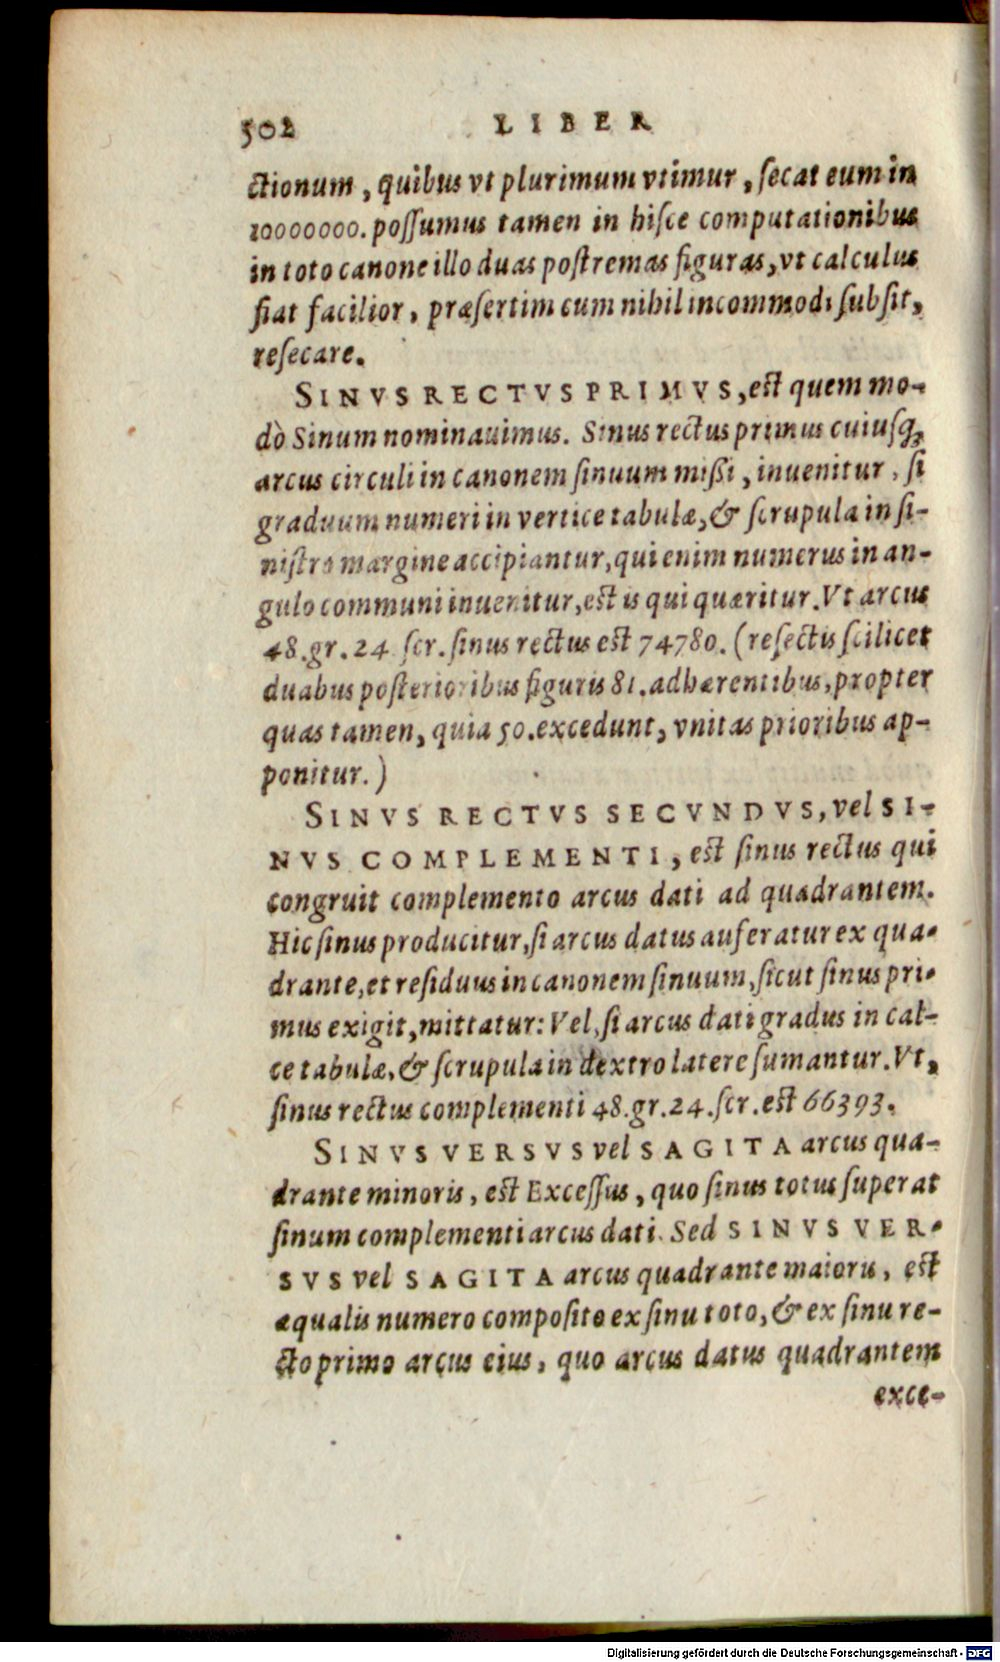 502 LIBER
ctionum, quibus vt plurimum vtimur, secat eum in
10000000. possumus tamen in hisce computationibus
in toto canone illo duas postremas figuras, vt calculus
fiat facilior, præsertim cum nihil incommodi subsit,
resecare.
SINVS RECTVS PRIMVS, est quem mo-
dò Sinum nominauimus. Sinus rectus primus cuiusq;
arcus circuli in canonem sinuum missi, inuenitur, si
graduum numeri in vertice tabulæ, & scrupula in si-
nistro margine accipiantur, qui enim numerus in an-
gulo communi inuenitur, est is qui quæritur. Vt arcus
48. gr. 24 scr. sinus rectus est 74780. (resectis scilicet
duabus posterioribus figuris 81. adhærentibus, propter
quas tamen, quia 50. excedunt, vnitas prioribus ap-
ponitur.)
SINVS RECTVS SECVNDVS, vel SI-
NVS COMPLEMENTI, est sinus rectus qui
congruit complemento arcus dati ad quadrantem.
Hic sinus producitur, si arcus datus auferatur ex qua-
drante, et residuus in canonem sinuum, sicut sinus pri-
mus exigit, mittatur: Vel, si arcus dati gradus in cal-
ce tabulæ, & scrupula in dextro latere sumantur. Vt,
sinus rectus complementi 48. gr. 24. scr. est 66393.
SINVS VERSVS vel SAGITA arcus qua-
drante minoris, est Excessus, quo sinus totus superat
sinum complementi arcus dati. Sed SINVS VER-
SVS vel SAGITA arcus quadrante maioris, est
æqualis numero composito ex sinu toto, & ex sinu re-
cto primo arcus eius, quo arcus datus quadrantem
exce-
Digitalisierung gefördert durch die Deutsche Forschungsgemeinschaft - DFG